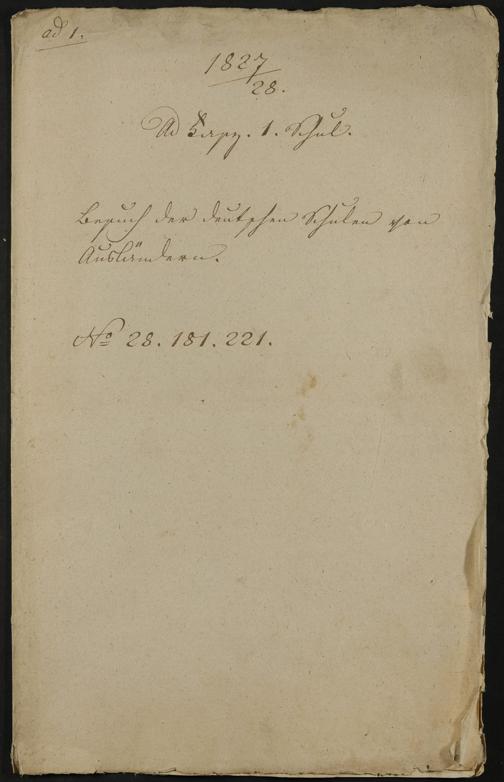 ad 1.
1827
28.
Ad 1. Schul.
Besuch der deutschen Schulen von
Ausländern.
No 28. 181. 221.